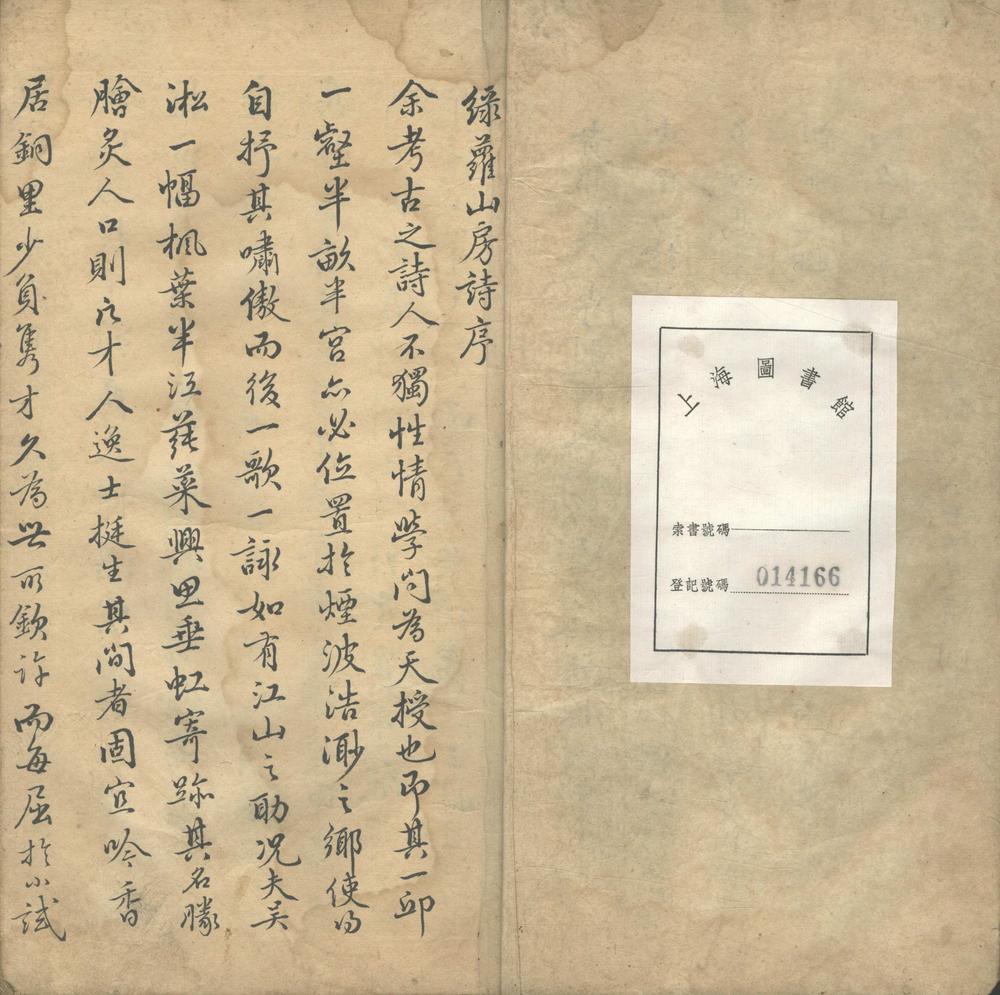 上海圖書館
索書號碼
登記號碼 014166
綠蘿山房詩序
余考古之詩人不獨性情學问為天授也即其一邱
一壑半畝半宮亦必位置於煙波浩渺之鄉使得
自抒其嘯傲而後一歌一詠如有江山之助况夫吴
淞一幅楓葉半江蓴菜興思垂虹寄跡其名勝
膾炙人口則凡才人逸士挺生其间者固宜吟香
居銅里少負雋才久為世所欽許而每屈於小試